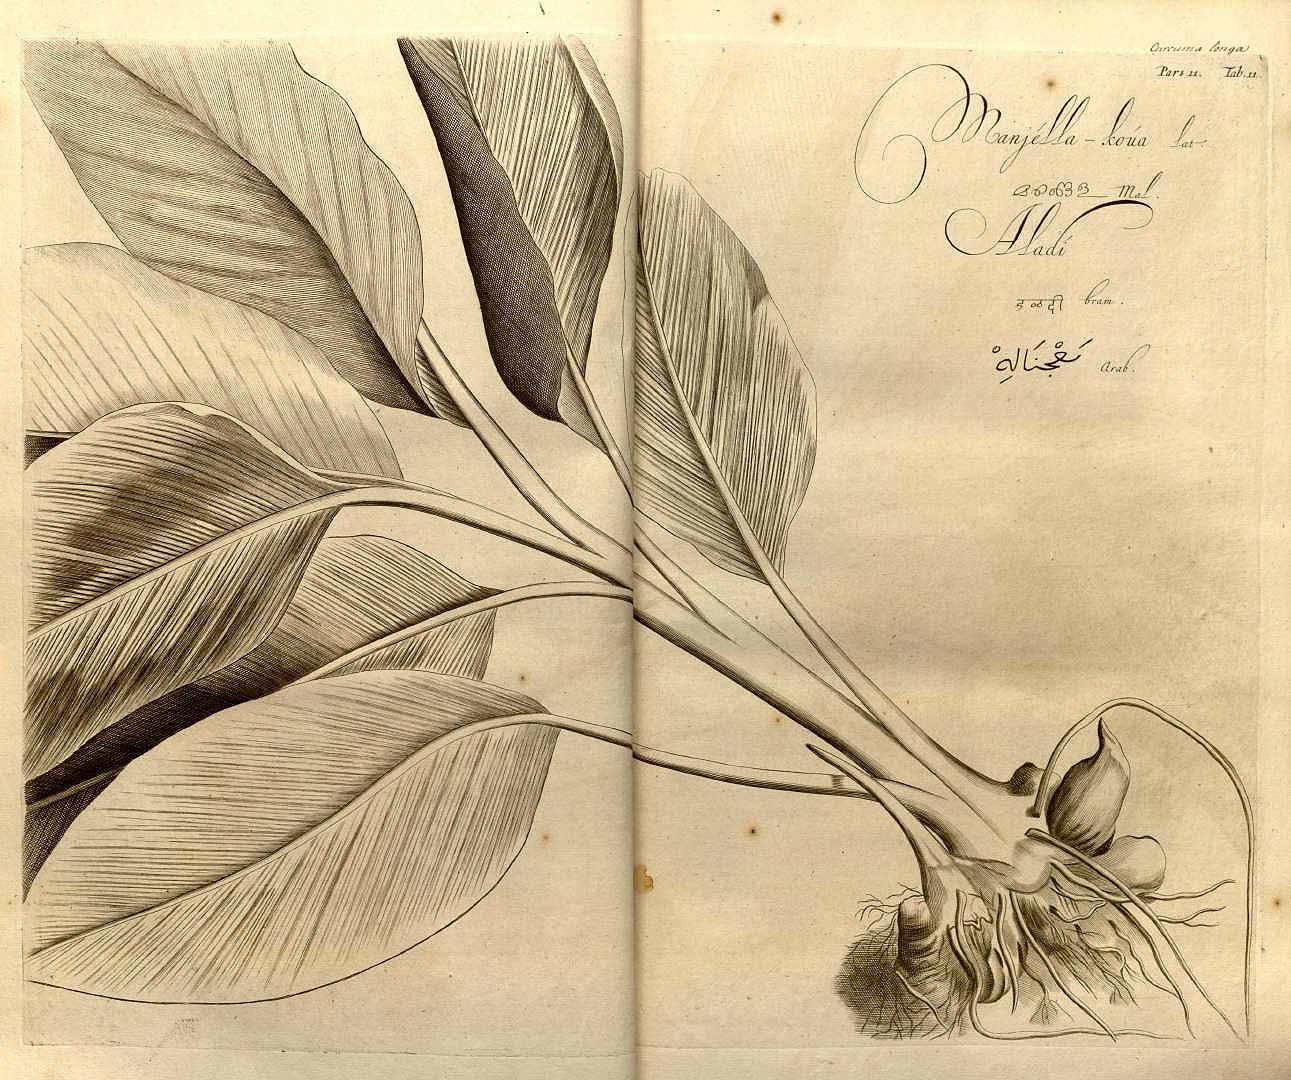 Curcuma longa
Pars 11. Tab. 11.
Manjélla-koúa lat.
Mal.
Aladí
bram.
Arab.